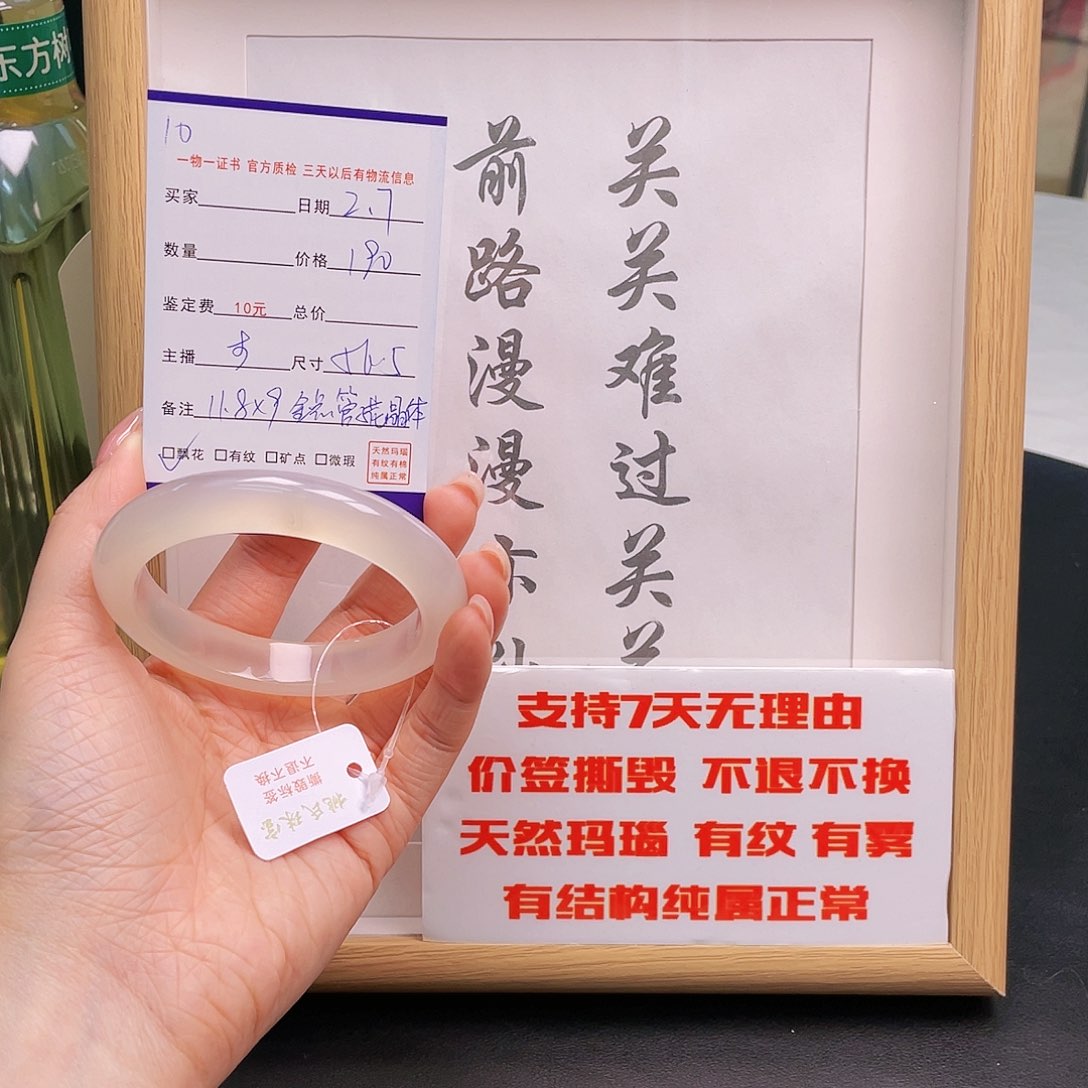 东方树
10
一物一证书 官方质检 三天以后有物流信息
买家 日期 2.7
数量 价格 190
鉴定费 10元 总价
主播 尺寸 56.5
备注 11.8×9 晶体
飘花 有纹 矿点 微瑕
天然玛瑙
有纹有棉
纯属正常
关关难过关关
前路漫漫
撕毁标签
不退不换
桃氏珠宝
支持7天无理由
价签撕毁 不退不换
天然玛瑙 有纹 有雾
有结构纯属正常